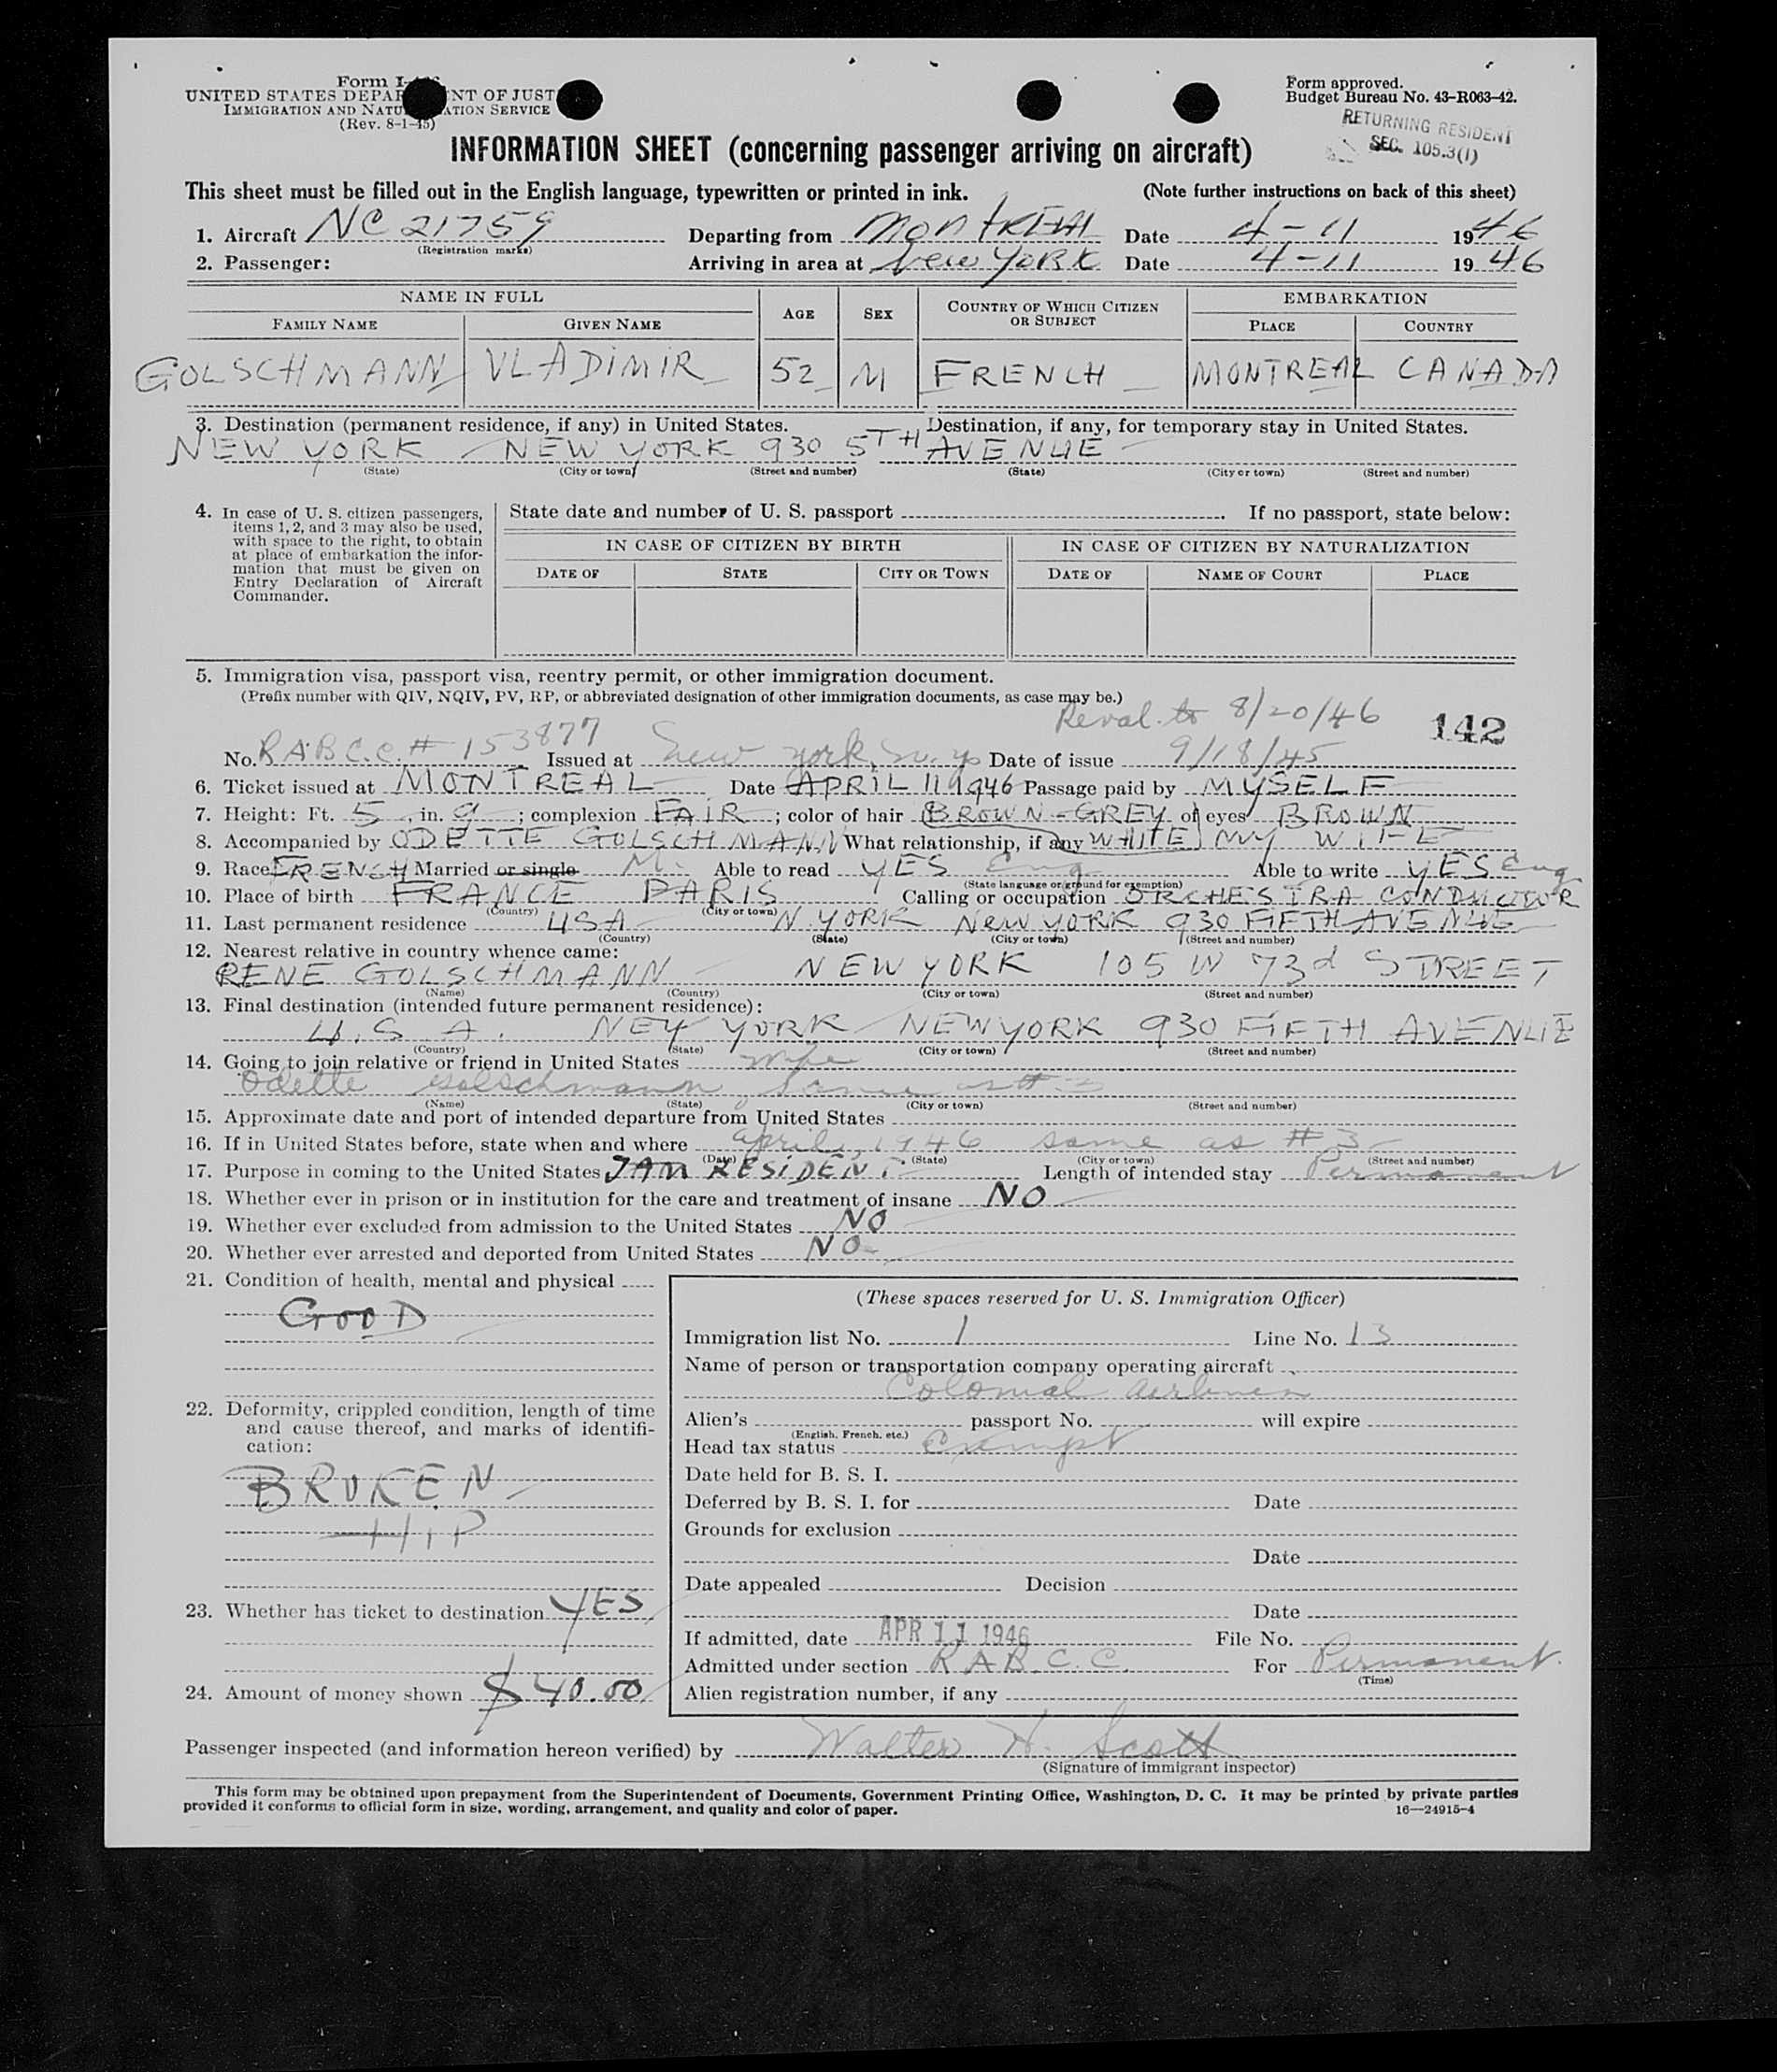 Form I-
UNITED STATES DEPAR NT OF JUST
IMMIGRATION AND NATU ATION SERVICE
(Rev. 8-1-45)
Form approved.
Budget Bureau No. 43-R063-42.
RETURNING RESIDENT
SEC. 105.3(1)
INFORMATION SHEET (concerning passenger arriving on aircraft)
This sheet must be filled out in the English language, typewritten or printed in ink. (Note further instructions on back of this sheet)
1. Aircraft NC 21759 Departing from MONTREAL Date 4-11 1946
(Registration marks)
2. Passenger: Arriving in area at New YORK Date 4-11 1946
NAME IN FULL AGE SEX COUNTRY OF WHICH CITIZEN OR SUBJECT EMBARKATION
FAMILY NAME GIVEN NAME PLACE COUNTRY
GOLSCHMANN VLADIMIR 52 M FRENCH MONTREAL CANADA
3. Destination (permanent residence, if any) in United States. Destination, if any, for temporary stay in United States.
NEW YORK – NEW YORK 930 5TH AVENUE
(State) (City or town) (Street and number) (State) (City or town) (Street and number)
4. In case of U. S. citizen passengers, items 1, 2, and 3 may also be used, with space to the right, to obtain at place of embarkation the information that must be given on Entry Declaration of Aircraft Commander.
State date and number of U. S. passport . If no passport, state below:
IN CASE OF CITIZEN BY BIRTH IN CASE OF CITIZEN BY NATURALIZATION
DATE OF STATE CITY OR TOWN DATE OF NAME OF COURT PLACE
5. Immigration visa, passport visa, reentry permit, or other immigration document.
(Prefix number with QIV, NQIV, PV, RP, or abbreviated designation of other immigration documents, as case may be.)
Reval. to 8/20/46 142
No. RABC.C. # 153877 Issued at New York, N.Y. Date of issue 9/18/45
6. Ticket issued at MONTREAL Date APRIL 11 1946 Passage paid by MYSELF
7. Height: Ft. 5, in. 9; complexion FAIR; color of hair BROWN-GREY of eyes BROWN
8. Accompanied by ODETTE GOLSCHMANN What relationship, if any WHITE MY WIFE
9. Race FRENCH Married or single M. Able to read YES Eng Able to write YES Eng
(State language or ground for exemption)
10. Place of birth FRANCE PARIS Calling or occupation ORCHESTRA CONDUCTOR
(Country) (City or town)
11. Last permanent residence USA N. YORK New YORK 930 FIFTH AVENUE
(Country) (State) (City or town) (Street and number)
12. Nearest relative in country whence came:
RENE GOLSCHMANN – NEW YORK 105 W 73d STREET
(Name) (Country) (City or town) (Street and number)
13. Final destination (intended future permanent residence):
U.S.A. NEY YORK NEW YORK 930 FIFTH AVENUE
(Country) (State) (City or town) (Street and number)
14. Going to join relative or friend in United States wife
Odette Golschmann, same as # 3
(Name) (State) (City or town) (Street and number)
15. Approximate date and port of intended departure from United States
16. If in United States before, state when and where April, 1946 same as # 3
(Date) (State) (City or town) (Street and number)
17. Purpose in coming to the United States I AM RESIDENT Length of intended stay Permanent
18. Whether ever in prison or in institution for the care and treatment of insane NO
19. Whether ever excluded from admission to the United States NO
20. Whether ever arrested and deported from United States NO
21. Condition of health, mental and physical
GOOD
22. Deformity, crippled condition, length of time and cause thereof, and marks of identification:
BROKEN
HIP
23. Whether has ticket to destination YES
24. Amount of money shown $40.00
(These spaces reserved for U. S. Immigration Officer)
Immigration list No. 1 Line No. 13
Name of person or transportation company operating aircraft
Colonial Airlines
Alien's passport No. will expire
(English, French, etc.)
Head tax status Exempt
Date held for B. S. I.
Deferred by B. S. I. for Date
Grounds for exclusion
Date
Date appealed Decision
Date
If admitted, date APR 11 1946 File No.
Admitted under section R A B C. C. For Permanent
(Time)
Alien registration number, if any
Passenger inspected (and information hereon verified) by Walter H. Scott
(Signature of immigrant inspector)
This form may be obtained upon prepayment from the Superintendent of Documents, Government Printing Office, Washington, D. C. It may be printed by private parties
provided it conforms to official form in size, wording, arrangement, and quality and color of paper. 16—24915-4